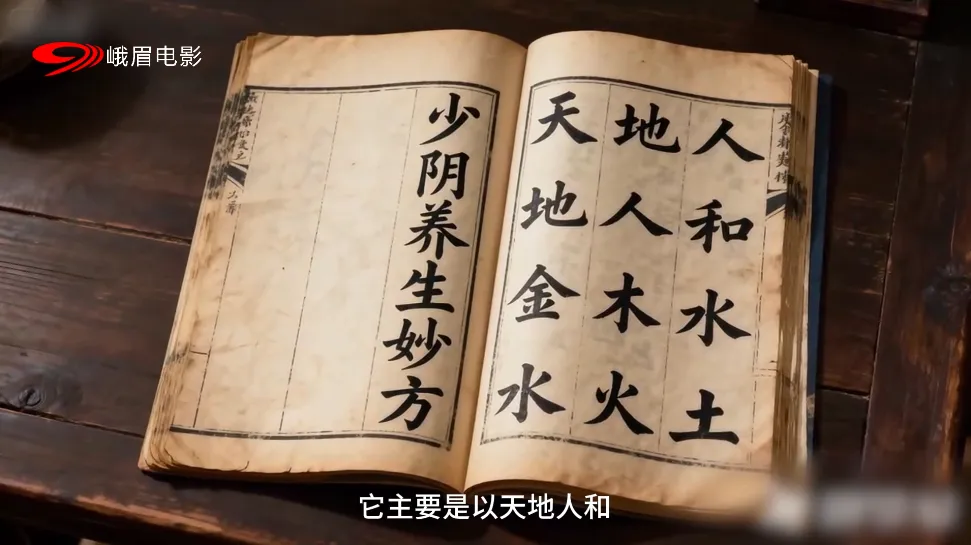 峨眉电影
少阴养生妙方
天地人
地人和
金木水
水火土
它主要是以天地人和